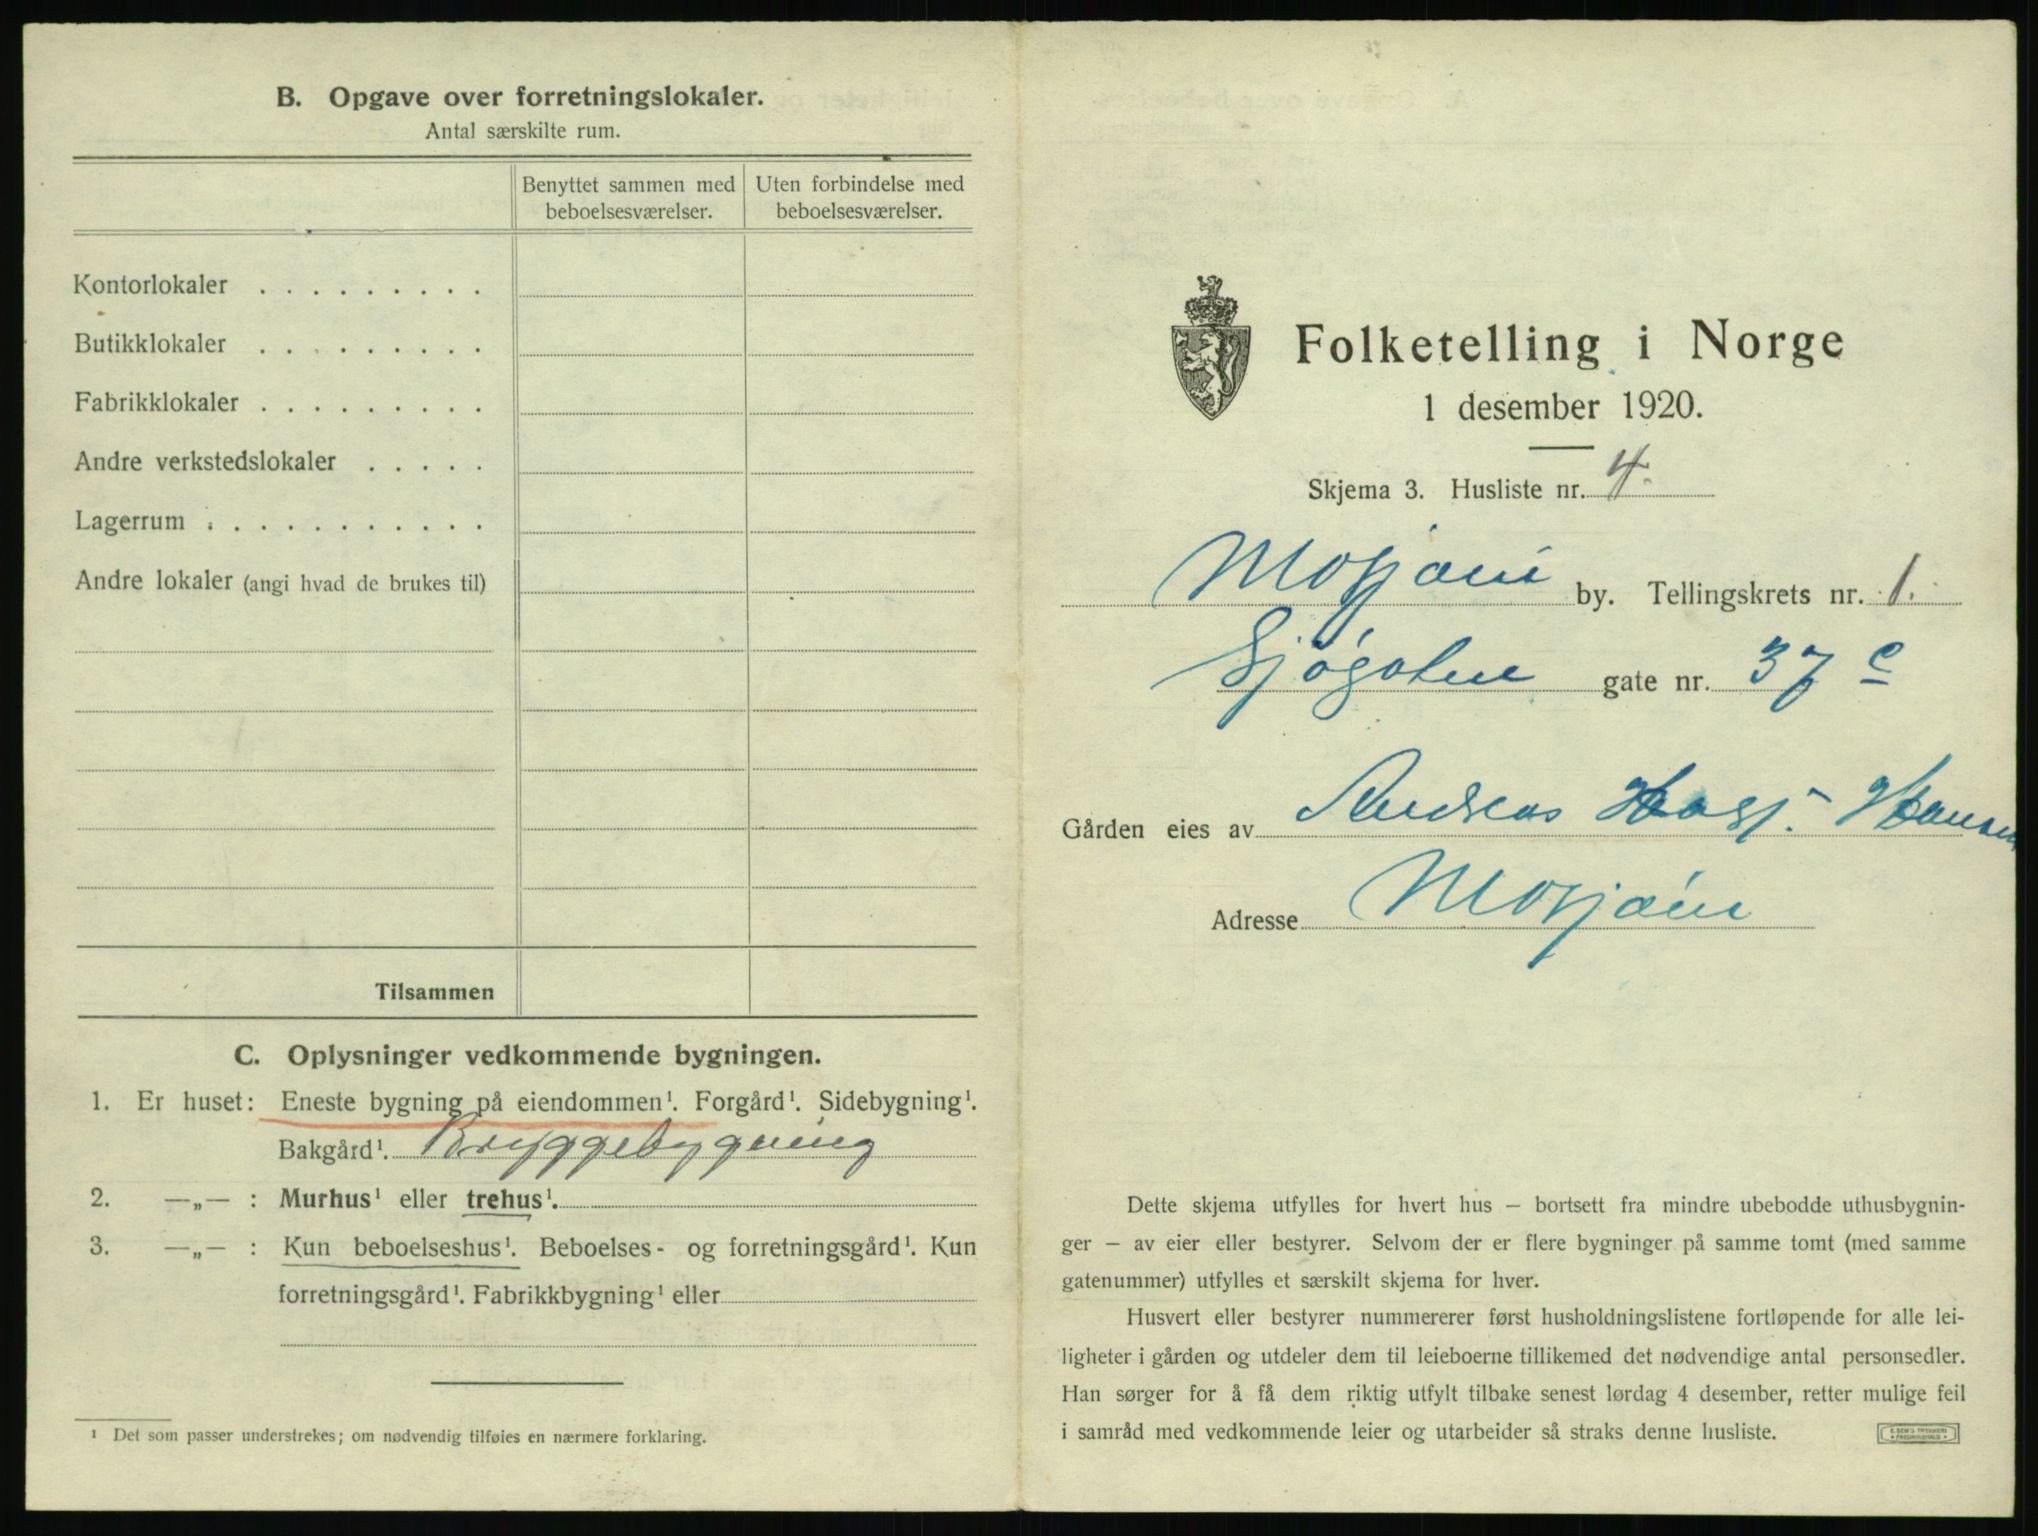 B. Opgave over forretningslokaler.
Antal særskilte rum.
Benyttet sammen med beboelsesværelser.
Uten forbindelse med beboelsesværelser.
Kontorlokaler . . . . . . . . .
Butikklokaler . . . . . . . . .
Fabrikklokaler . . . . . . . . .
Andre verkstedslokaler . . . . .
Lagerrum . . . . . . . . . . .
Andre lokaler (angi hvad de brukes til)
Tilsammen
C. Oplysninger vedkommende bygningen.
1. Er huset: Eneste bygning på eiendommen¹. Forgård¹. Sidebygning¹.
Bakgård¹. Bryggebygning
2. —„— : Murhus¹ eller trehus¹.
3. —„— : Kun beboelseshus¹. Beboelses- og forretningsgård¹. Kun
forretningsgård¹. Fabrikkbygning¹ eller
¹ Det som passer understrekes; om nødvendig tilføies en nærmere forklaring.
Folketelling i Norge
1 desember 1920.
Skjema 3. Husliste nr. 4.
Mosjøen by. Tellingskrets nr. 1.
Sjøgaten gate nr. 37 c
Gården eies av Andreas Hansen
Adresse Mosjøen
Dette skjema utfylles for hvert hus – bortsett fra mindre ubebodde uthusbygnin-
ger – av eier eller bestyrer. Selvom der er flere bygninger på samme tomt (med samme
gatenummer) utfylles et særskilt skjema for hver.
Husvert eller bestyrer nummererer først husholdningslistene fortløpende for alle lei-
ligheter i gården og utdeler dem til leieboerne tillikemed det nødvendige antal personsedler.
Han sørger for å få dem riktig utfylt tilbake senest lørdag 4 desember, retter mulige feil
i samråd med vedkommende leier og utarbeider så straks denne husliste.